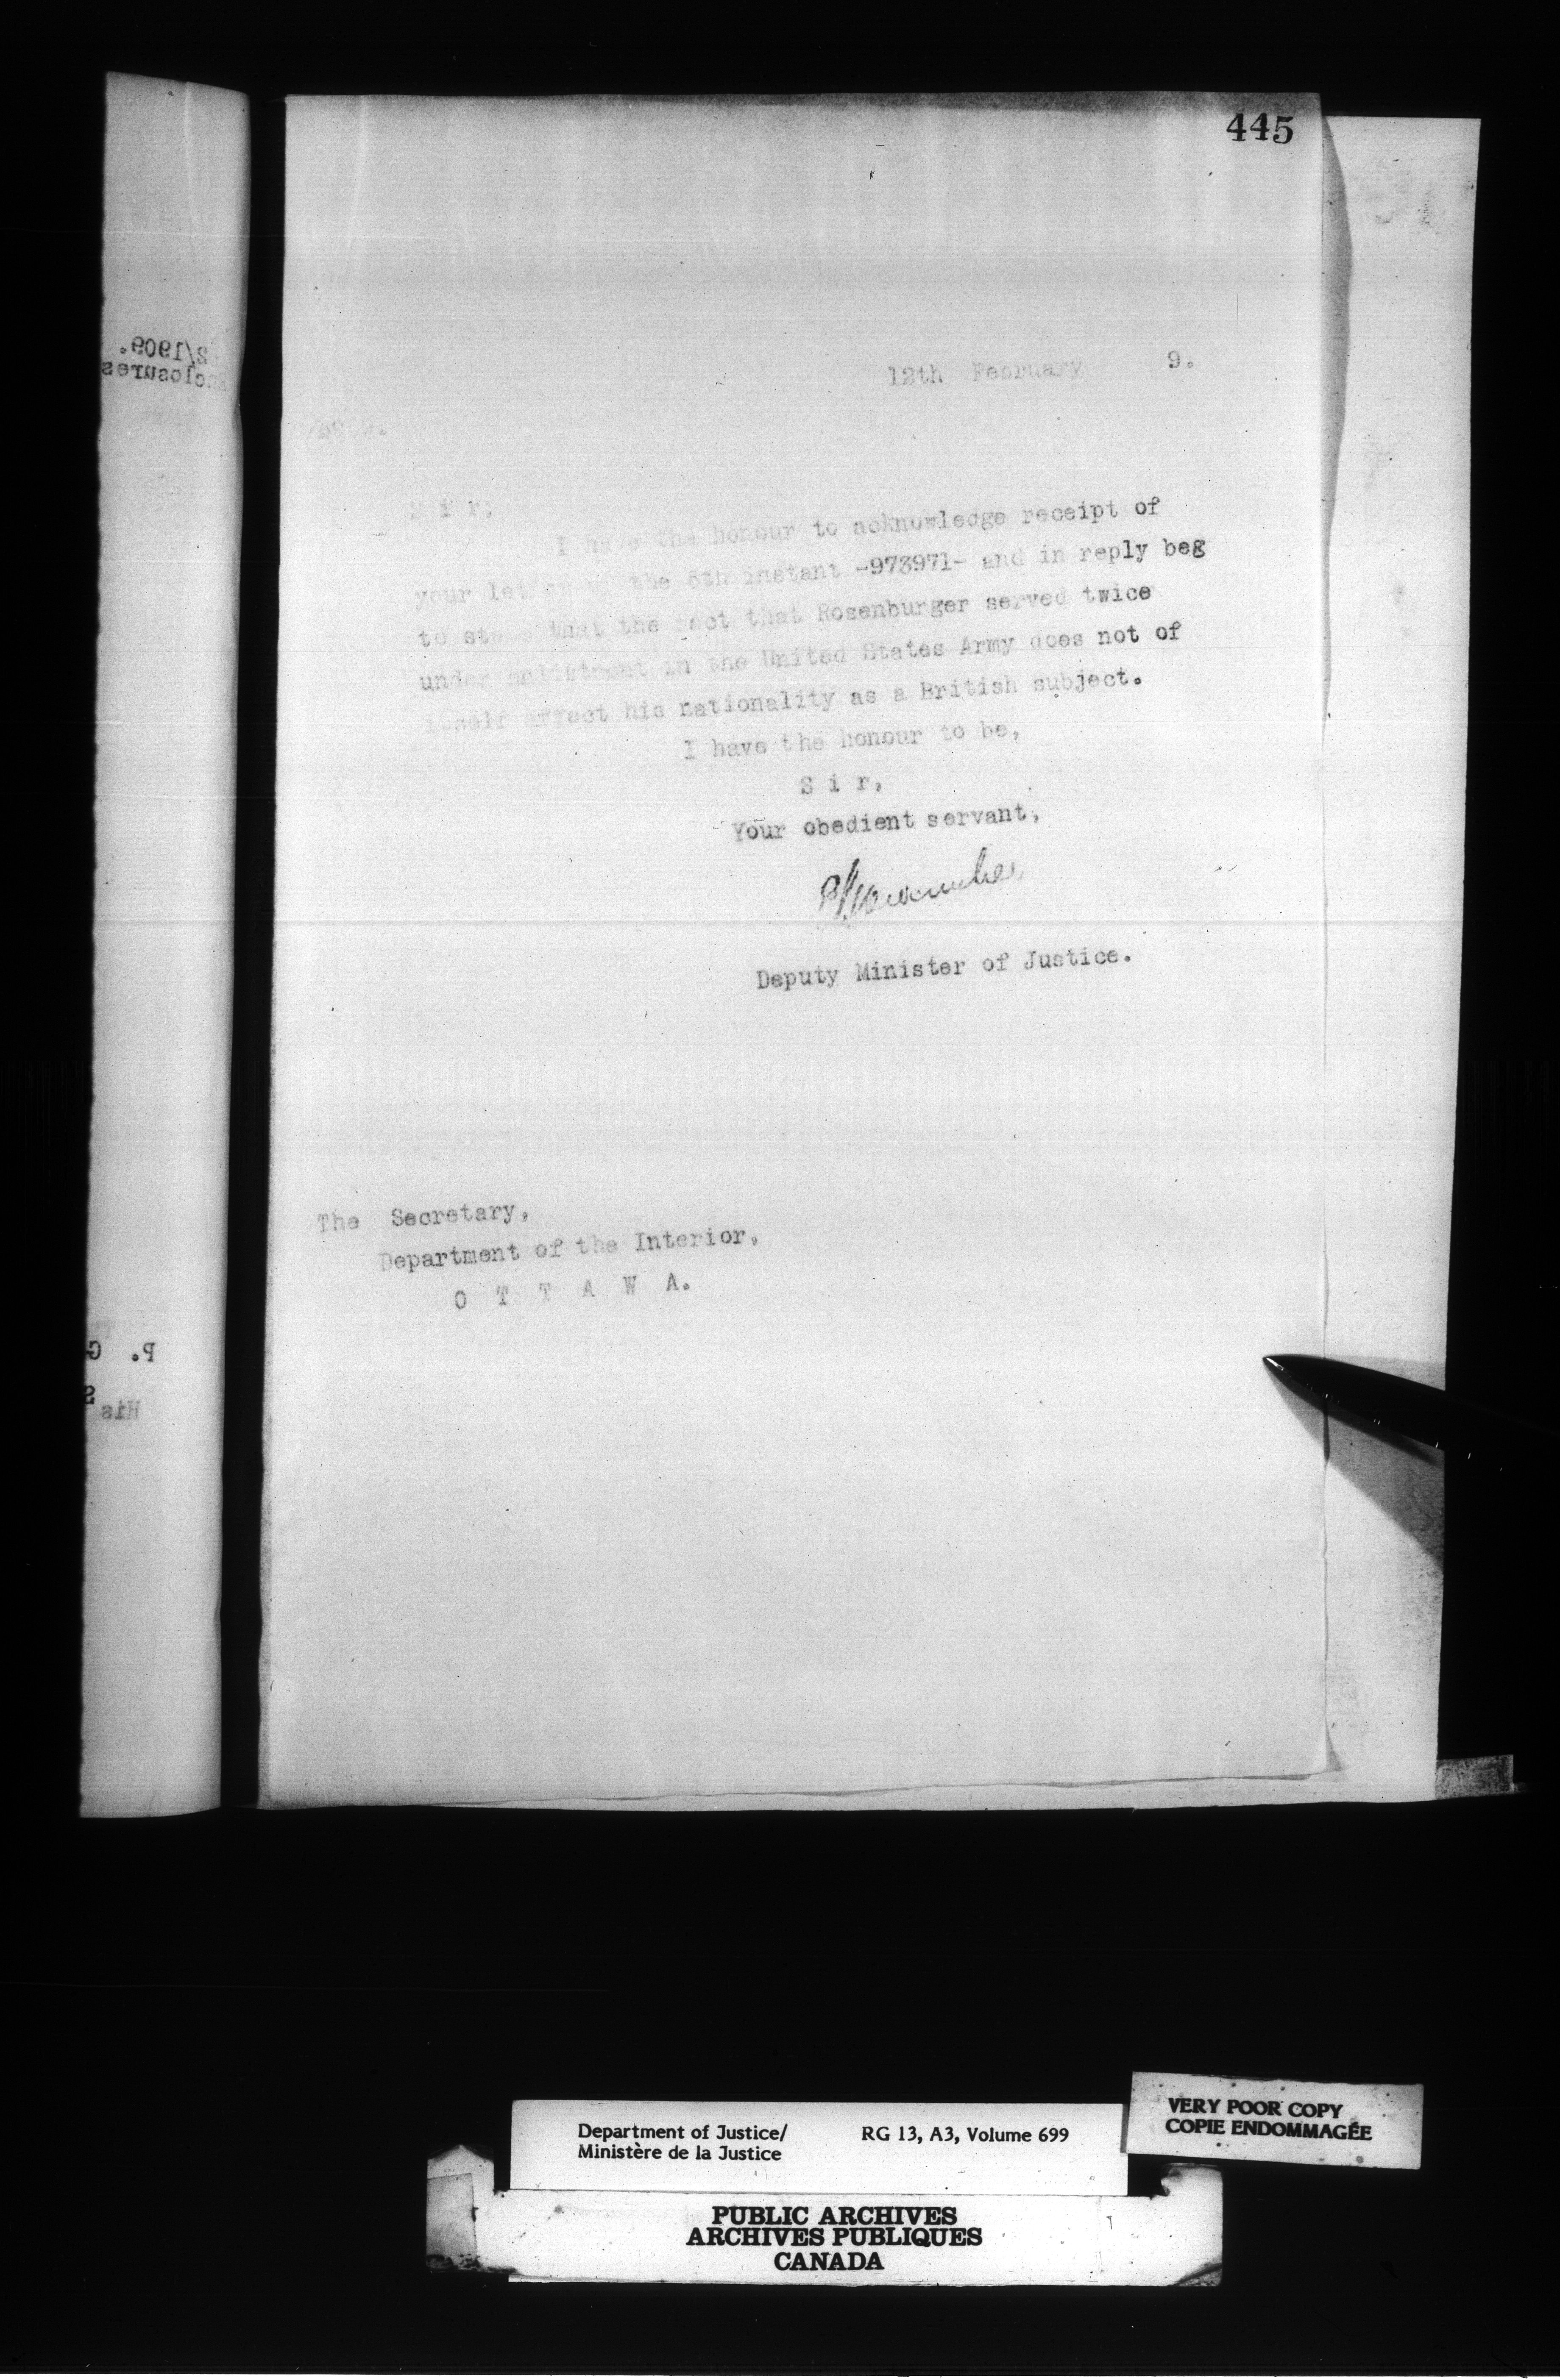 445
12th February 9.
Sir:
I have the honour to acknowledge receipt of
your letter of the 5th instant -973971- and in reply beg
to state that the fact that Rosenburger served twice
under enlistment in the United States Army does not of
itself affect his nationality as a British subject.
I have the honour to be,
S i r,
Your obedient servant,
Deputy Minister of Justice.
The Secretary,
Department of the Interior,
O T T A W A.
Department of Justice/
Ministère de la Justice
RG 13, A3, Volume 699
VERY POOR COPY
COPIE ENDOMMAGÉE
PUBLIC ARCHIVES
ARCHIVES PUBLIQUES
CANADA